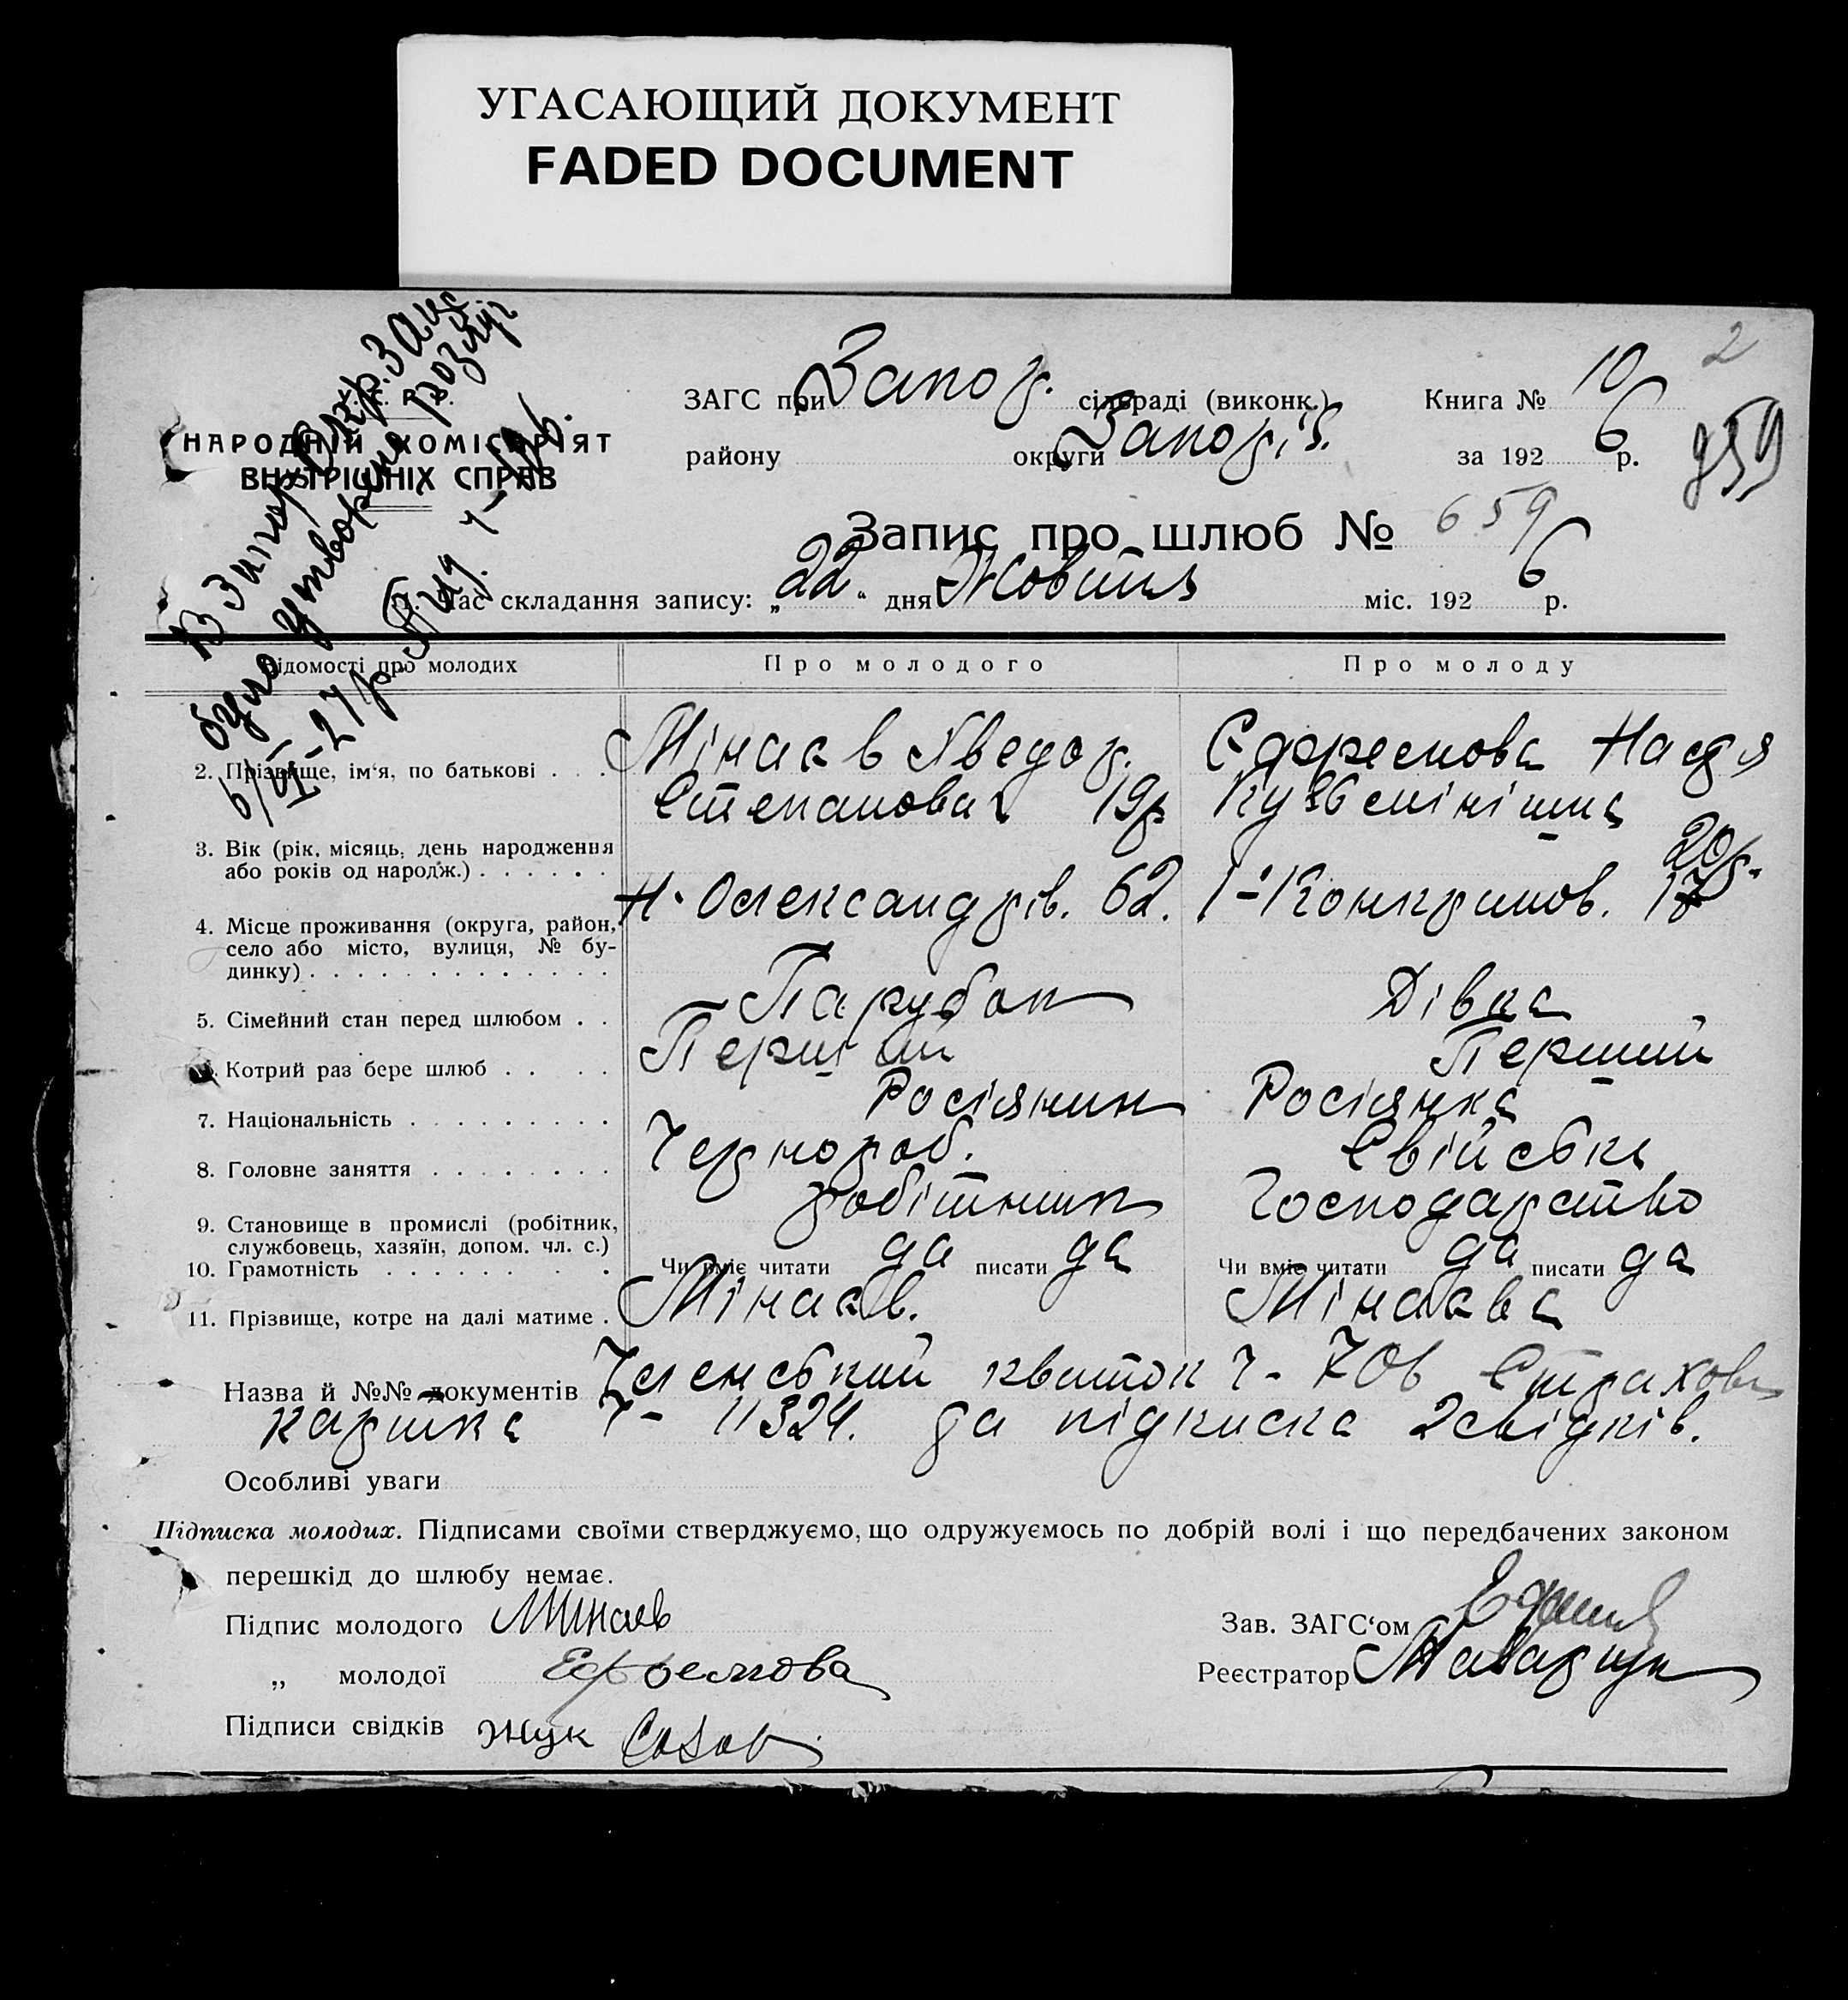 УГАСАЮЩИЙ ДОКУМЕНТ
FADED DOCUMENT
2
У. С. Р. Р.
НАРОДНІЙ КОМІСАРІЯТ
ВНУТРІШНІХ СПРАВ
В Запор. Окр. Загс
було утворено розлуг
6/VI-27 р. Акт ч-
ЗАГС при Запор. сільраді (виконк.) Книга № 10
району округи Запоріз. за 1926 р.
959
Запис про шлюб № 659
1. Час складання запису: „22“ дня Жовтня міс. 1926 р.
Відомості про молодих Про молодого Про молоду
2. Прізвище, ім'я, по батькові Мінаєв Хведор. Єфремова Настя
Степанович 19р. Кузьмінішна
3. Вік (рік, місяць, день народження 20р.
або років од народж.)
Н. Олександрів. 62. 1-ї 17
4. Місце проживання (округа, район,
село або місто, вулиця, № бу-
динку)
5. Сімейний стан перед шлюбом Парубок Дівка
6. Котрий раз бере шлюб Перший Перший
7. Національність Росіянин Росіянка
8. Головне заняття Чернороб. Свійське
9. Становище в промислі (робітник, робітник Господарство
службовець, хазяїн, допом. чл. с.)
10. Грамотність Чи вміє читати да писати да Чи вміє читати да писати да
11. Прізвище, котре на далі матиме Мінаєв. Мінаєва
Назва й №№ документів Членський квиток ч- 706 Страхова
картка ч- 11324. да підписка 2 свідків.
Особливі уваги
Підписка молодих. Підписами своїми стверджуємо, що одружуємось по добрій волі і що передбачених законом
перешкід до шлюбу немає.
Підпис молодого Минаев Зав. ЗАГС'ом
„ молодої Ефремова Реєстратор
Підписи свідків Жук